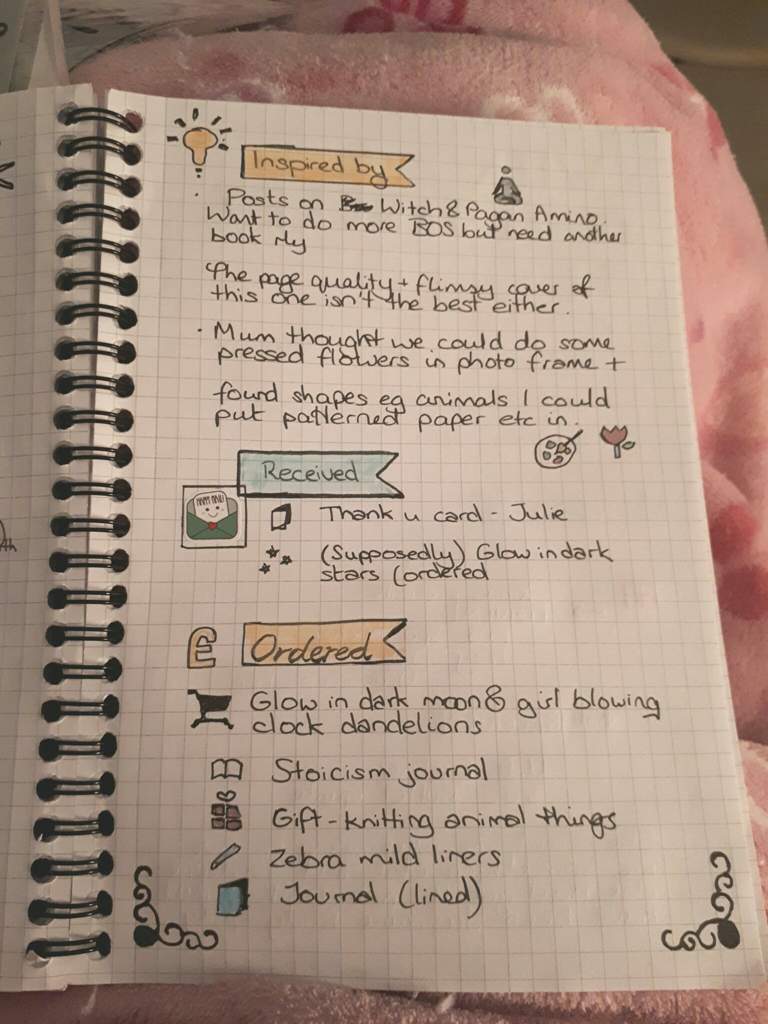 Inspired by
· Posts on Witch & Pagan Amino.
Want to do more BOS but need another
book rly
The page quality + flimsy cover of
this one isn't the best either.
· Mum thought we could do some
pressed flowers in photo frame +
found shapes eg animals I could
put patterned paper etc in.
Received
HAPPY MAIL
Thank u card - Julie
(Supposedly) Glow in dark
stars (ordered
£ Ordered
Glow in dark moon & girl blowing
clock dandelions
Stoicism journal
Gift - knitting animal things
Zebra mild liners
Journal (lined)